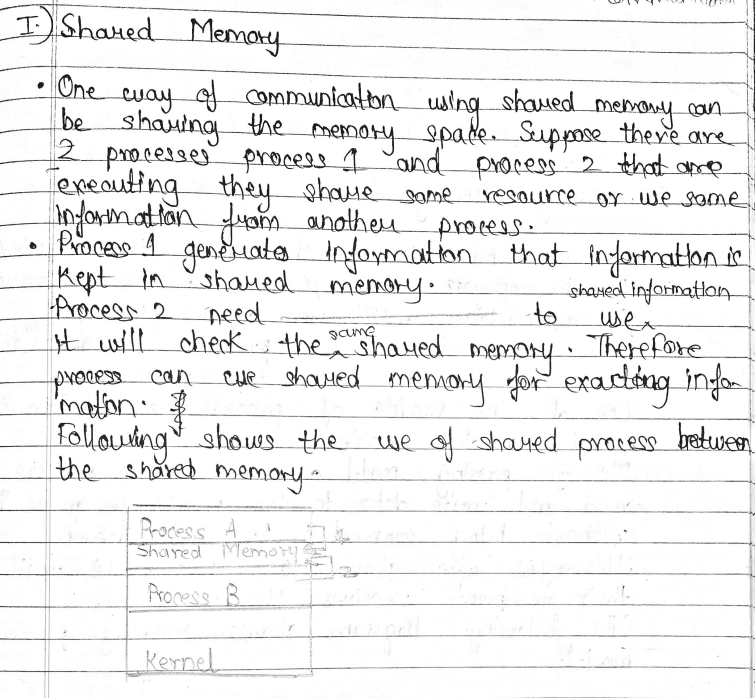 I.) Shared Memory
• One way of communication using shared memory can
be sharing the memory space. Suppose there are
2 processes process 1 and process 2 that are
executing they share some resource or use some
information from another process.
• Process 1 generates information that information is
kept in shared memory.
Process 2 need to use shared information
It will check the same shared memory. Therefore
process can use shared memory for exacting infor-
mation.
Following shows the use of shared process between
the shared memory.
Process A 1
Shared Memory
2
Process B
Kernel